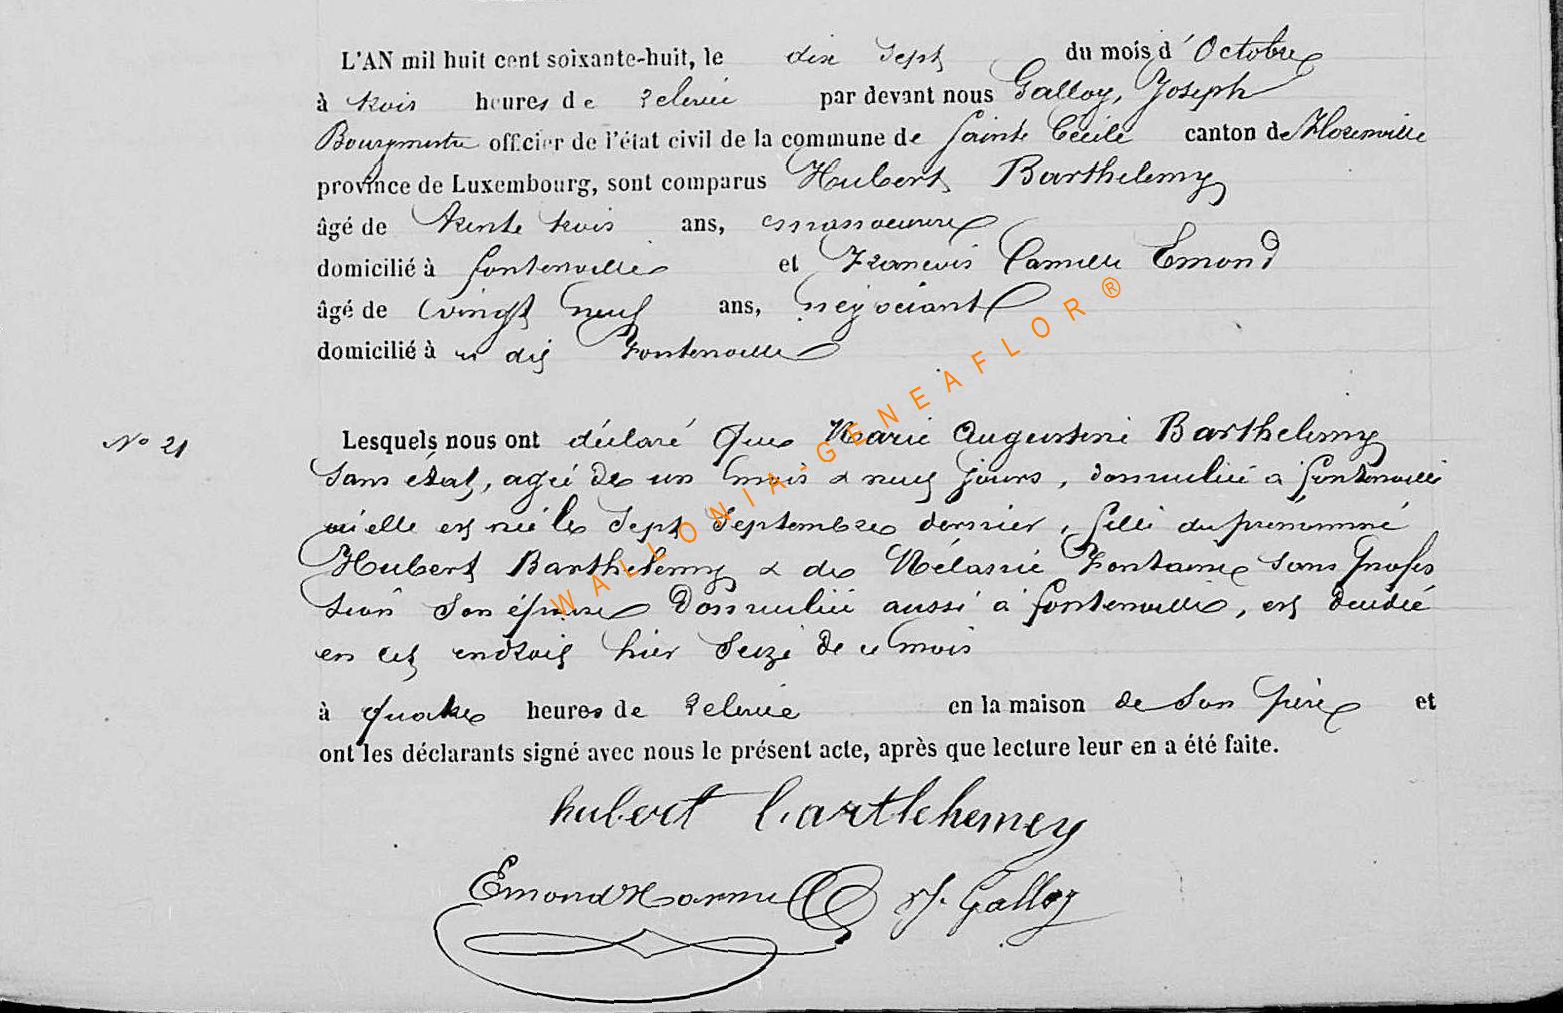 L'AN mil huit cent soixante-huit, le dix sept du mois d'Octobre
à trois heures de relevée par devant nous Galloy, Joseph
Bourgmestre officier de l'état civil de la commune de Sainte Cécile canton de Florenville
province de Luxembourg, sont comparus Hubert Barthelemy
âgé de trente trois ans, manoeuvre
domicilié à fontenoille et François Camille Emond
âgé de vingt neuf ans, négociant
domicilié à u dit Fontenoille
N° 21
Lesquels nous ont déclaré que Marie Augustine Barthelemy
sans état, agée de un mois & neuf jours, domiciliée à fontenoille
où elle est née le sept septembre dernier, fille du prénommé
Hubert Barthelemy & de Mélanie Fontaine sans profes
sion son épouse domiciliée aussi à fontenoille, est décédée
en cet endroit hier seize de ce mois
à quatre heures de relevée en la maison de son père et
ont les déclarants signé avec nous le présent acte, après que lecture leur en a été faite.
hubert barthelemey
Emond J. Galloy
WALLONIA-GENEAFLOR®